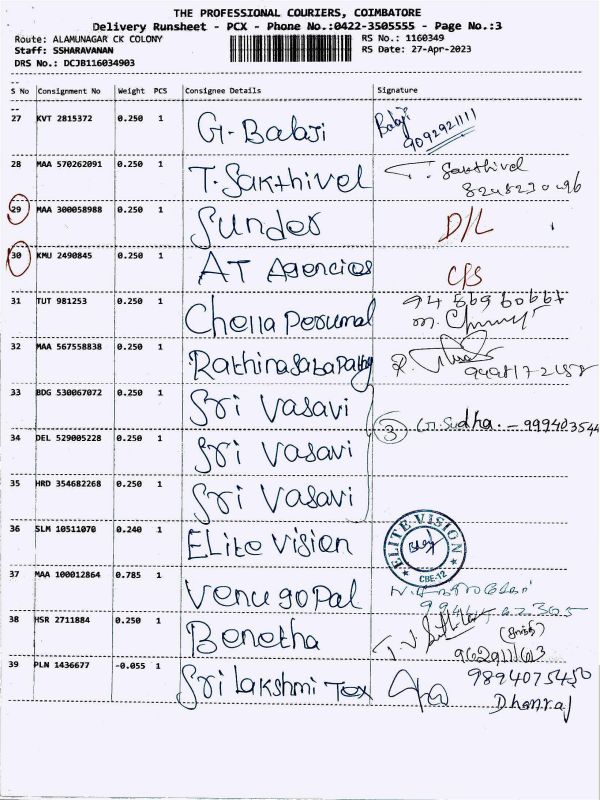 THE PROFESSIONAL COURIERS, COIMBATORE
Delivery Runsheet - PCX - Phone No.:0422-3505555 - Page No.:3
Route: ALAMUNAGAR CK COLONY
RS No.: 1160349
Staff: SSHARAVANAN
RS Date: 27-Apr-2023
DRS No.: DCJB116034903
S No Consignment No Weight PCS Consignee Details Signature
27 KVT 2815372 0.250 1 G. Balaji Balaji
9092921111
28 MAA 570262091 0.250 1 T. Sakthivel T. Sakthivel
29 MAA 300058988 0.250 1 Sunder D/L
30 KMU 2490845 0.250 1 AT Agencies
31 TUT 981253 0.250 1 Chella Perumal
32 MAA 567558838 0.250 1 Rathinasabapathy
33 BDG 530067072 0.250 1 Sri Vasavi
34 DEL 529005228 0.250 1 Sri Vasavi ③ G. Sudha. - 999403544
35 HRD 354682268 0.250 1 Sri Vasavi
36 SLM 10511070 0.240 1 ELite Vision ELITE VISION
CBE-12
37 MAA 100012864 0.785 1 Venugopal
38 HSR 2711884 0.250 1 Benetha
39 PLN 1436677 -0.055 1 Sri Lakshmi Tex 9894075450
Dhanraj